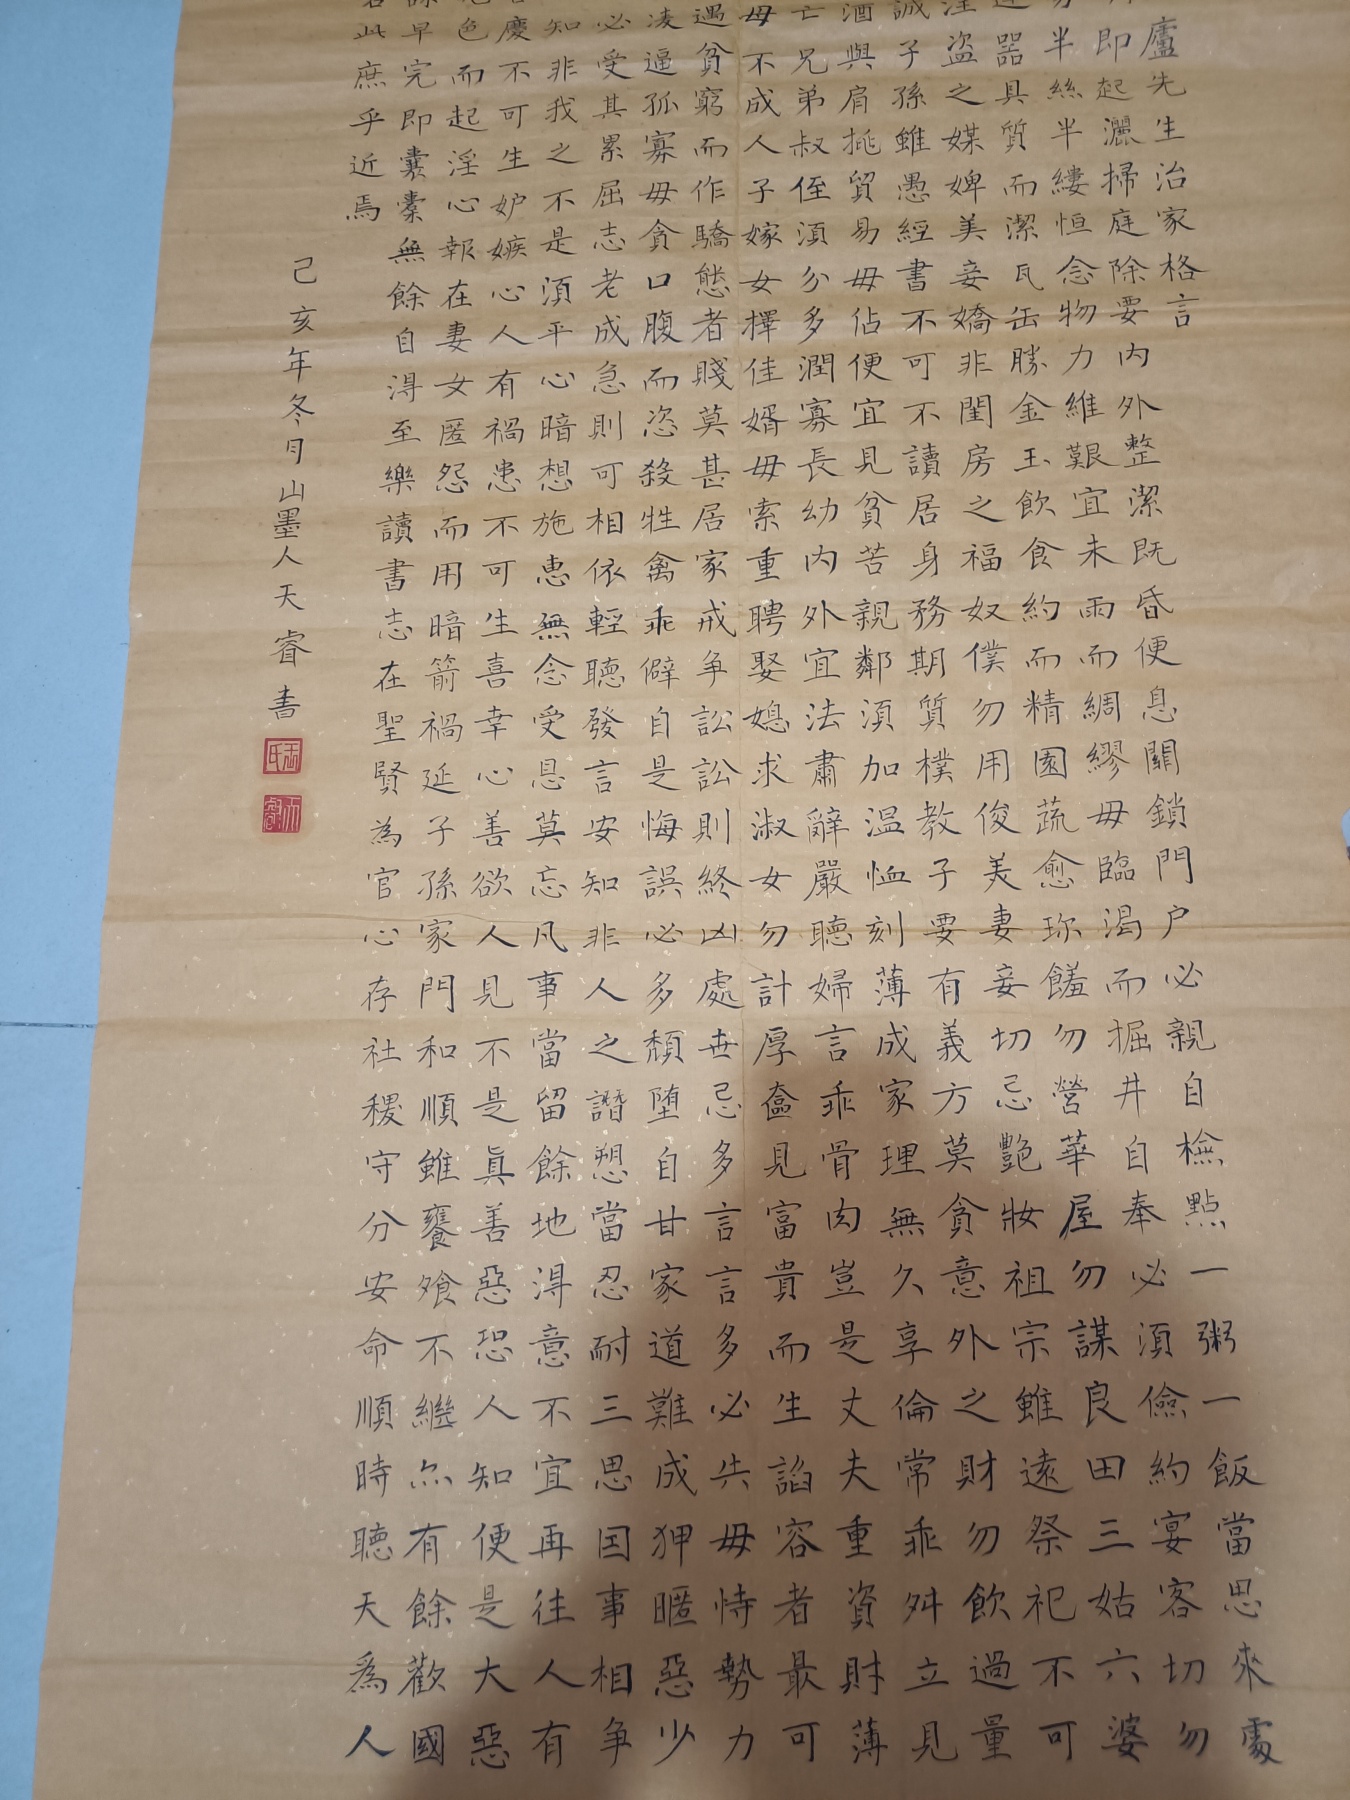 廬先生治家格言
即起灑掃庭除要内外整潔既昏便息關鎖門户必親自檢點一粥一飯當思來處
半絲半縷恒念物力維艱宜未雨而綢繆毋臨渴而掘井自奉必須儉約宴客切勿
器具質而潔瓦缶勝金玉飲食約而精園蔬愈珍饈勿營華屋勿謀良田三姑六婆
淫盗之媒婢美妾嬌非閨房之福奴僕勿用俊美妻妾切忌艷妝祖宗雖遠祭祀不可
誠子孫雖愚經書不可不讀居身務期質樸教子要有義方莫貪意外之財勿飲過量
酒與肩挑貿易毋佔便宜見貧苦親鄰須加温恤刻薄成家理無久享倫常乖舛立見
亡兄弟叔侄須分多潤寡長幼内外宜法肅辭嚴聽婦言乖骨肉豈是丈夫重資財薄
毋不成人子嫁女擇佳婿毋索重聘娶媳求淑女勿計厚奩見富貴而生諂容者最可
遇貧窮而作驕態者賤莫甚居家戒争訟訟則終凶處世忌多言言多必失毋恃勢力
凌逼孤寡毋貪口腹而恣殺牲禽乖僻自是悔誤必多頹堕自甘家道難成狎暱惡少
必受其累屈志老成急則可相依輕聽發言安知非人之譖愬當忍耐三思因事相争
知非我之不是須平心暗想施惠無念受恩莫忘凡事當留餘地得意不宜再往人有
慶不可生妒嫉心人有禍患不可生喜幸心善欲人見不是真善惡恐人知便是大惡
色而起淫心報在妻女匿怨而用暗箭禍延子孫家門和順雖饔飧不繼亦有餘歡國
早完即囊橐無餘自得至樂讀書志在聖賢為官心存社稷守分安命順時聽天為人
此庶乎近焉
己亥年冬月山墨人天睿書